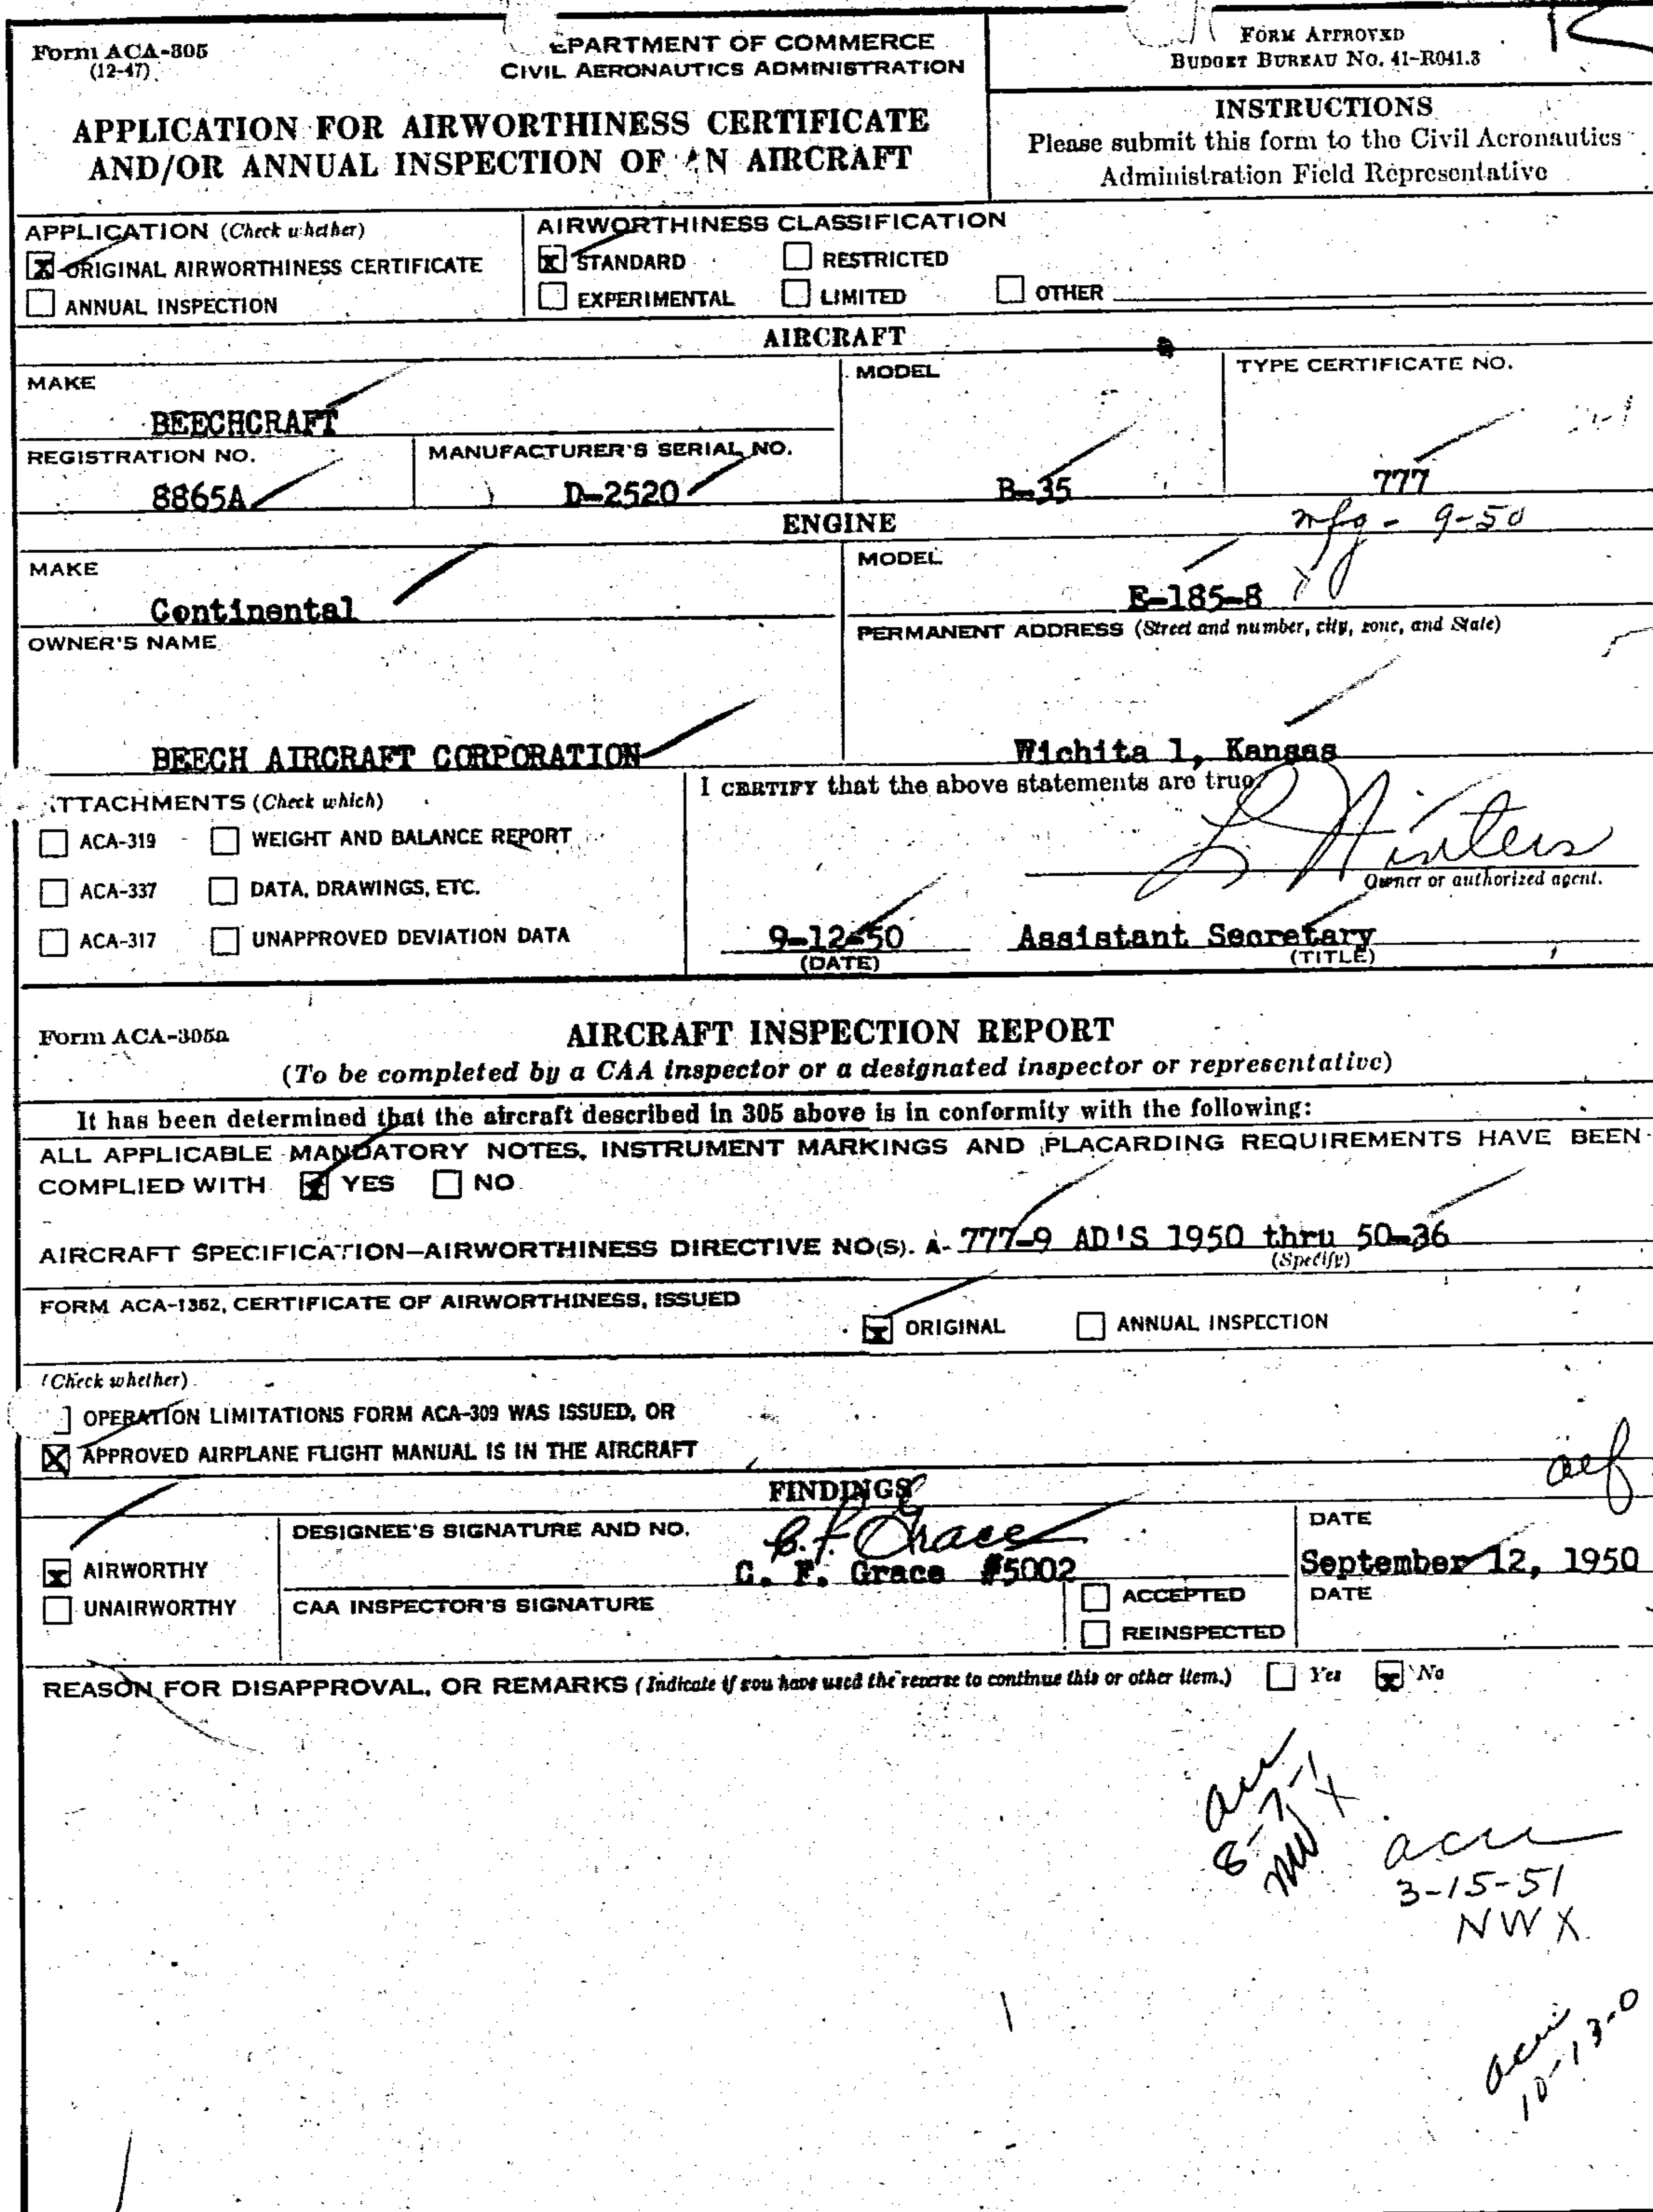 Form ACA-305
(12-47)
EPARTMENT OF COMMERCE
CIVIL AERONAUTICS ADMINISTRATION
APPLICATION FOR AIRWORTHINESS CERTIFICATE
AND/OR ANNUAL INSPECTION OF AN AIRCRAFT
FORM APPROVED
BUDGET BUREAU NO. 41-R041.3
INSTRUCTIONS
Please submit this form to the Civil Aeronautics
Administration Field Representative
APPLICATION (Check whether)
X ORIGINAL AIRWORTHINESS CERTIFICATE
ANNUAL INSPECTION
AIRWORTHINESS CLASSIFICATION
X STANDARD RESTRICTED
EXPERIMENTAL LIMITED OTHER
AIRCRAFT
MAKE
BEECHCRAFT
MODEL
B-35
TYPE CERTIFICATE NO.
777
REGISTRATION NO.
8865A
MANUFACTURER'S SERIAL NO.
D-2520
mfg - 9-50
ENGINE
MAKE
Continental
MODEL
E-185-8
OWNER'S NAME
BEECH AIRCRAFT CORPORATION
PERMANENT ADDRESS (Street and number, city, zone, and State)
Wichita 1, Kansas
ATTACHMENTS (Check which)
ACA-319 WEIGHT AND BALANCE REPORT
ACA-337 DATA, DRAWINGS, ETC.
ACA-317 UNAPPROVED DEVIATION DATA
I CERTIFY that the above statements are true.
L Winters
Owner or authorized agent.
9-12-50 Assistant Secretary
(DATE) (TITLE)
Form ACA-305a
AIRCRAFT INSPECTION REPORT
(To be completed by a CAA inspector or a designated inspector or representative)
It has been determined that the aircraft described in 305 above is in conformity with the following:
ALL APPLICABLE MANDATORY NOTES, INSTRUMENT MARKINGS AND PLACARDING REQUIREMENTS HAVE BEEN
COMPLIED WITH X YES NO
AIRCRAFT SPECIFICATION—AIRWORTHINESS DIRECTIVE NO(S). A- 777-9 AD'S 1950 thru 50-36
(Specify)
FORM ACA-1362, CERTIFICATE OF AIRWORTHINESS, ISSUED
X ORIGINAL ANNUAL INSPECTION
(Check whether)
OPERATION LIMITATIONS FORM ACA-309 WAS ISSUED, OR
X APPROVED AIRPLANE FLIGHT MANUAL IS IN THE AIRCRAFT
FINDINGS
X AIRWORTHY
UNAIRWORTHY
DESIGNEE'S SIGNATURE AND NO.
C. F. Grace
C. F. Grace #5002
DATE
September 12, 1950
CAA INSPECTOR'S SIGNATURE
ACCEPTED
REINSPECTED
DATE
REASON FOR DISAPPROVAL, OR REMARKS (Indicate if you have used the reverse to continue this or other item.) Yes X No
8-7-1
3-15-51
NWX
10-13-0